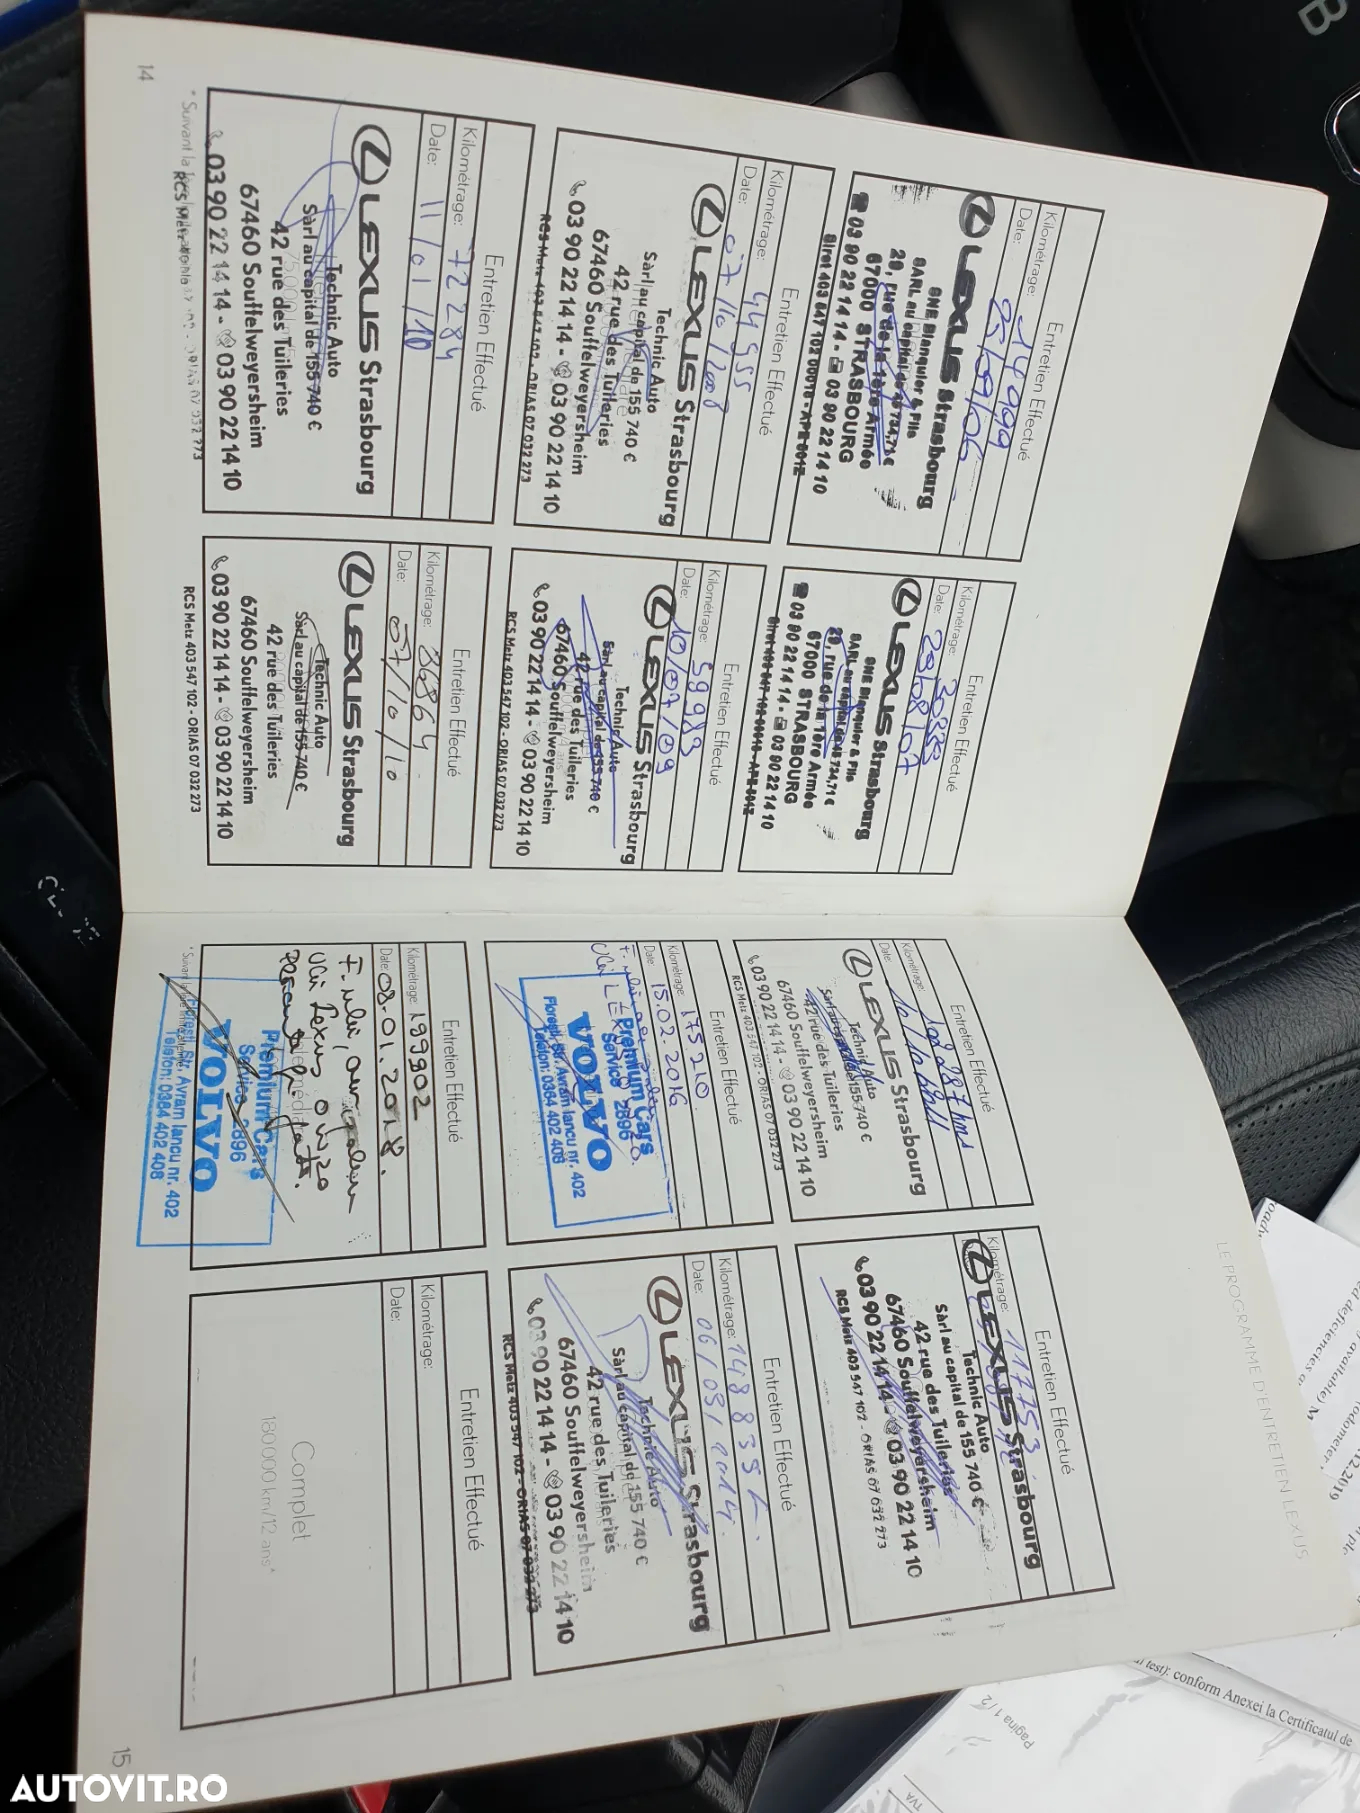 LE PROGRAMME D'ENTRETIEN LEXUS
Entretien Effectué
Kilométrage: 14999
Date: 05/09/06
LEXUS Strasbourg
SNE Blanquier & Fils
SARL au capital de 48 734,71 €
29, rue de la 1ère Armée
67000 STRASBOURG
03 90 22 14 14 - 03 90 22 14 10
Siret 403 547 102 00016 - APE 501Z
Entretien Effectué
Kilométrage:
Date: 29/08/07
LEXUS Strasbourg
SNE Blanquier & Fils
SARL au capital de 48 734,71 €
29, rue de la 1ère Armée
67000 STRASBOURG
03 90 22 14 14 - 03 90 22 14 10
Entretien Effectué
Kilométrage: 44955
Date: 07/10/2008
LEXUS Strasbourg
Technic Auto
Sàrl au capital de 155 740 €
42 rue des Tuileries
67460 Souffelweyersheim
03 90 22 14 14 - 03 90 22 14 10
RCS Metz 403 547 102 - ORIAS 07 032 273
Entretien Effectué
Kilométrage: 59989
Date: 10/07/09
LEXUS Strasbourg
Technic Auto
Sàrl au capital de 155 740 €
42 rue des Tuileries
67460 Souffelweyersheim
03 90 22 14 14 - 03 90 22 14 10
RCS Metz 403 547 102 - ORIAS 07 032 273
Entretien Effectué
Kilométrage: 72284
Date: 11/01/10
LEXUS Strasbourg
Technic Auto
Sàrl au capital de 155 740 €
42 rue des Tuileries
67460 Souffelweyersheim
03 90 22 14 14 - 03 90 22 14 10
RCS Metz
* Suivant la
Entretien Effectué
Kilométrage: 86864
Date: 07/10/10
LEXUS Strasbourg
Technic Auto
Sàrl au capital de 155 740 €
42 rue des Tuileries
67460 Souffelweyersheim
03 90 22 14 14 - 03 90 22 14 10
RCS Metz 403 547 102 - ORIAS 07 032 273
14
Entretien Effectué
Kilométrage: 102287 kms
Date:
LEXUS Strasbourg
Technic Auto
Sàrl au capital de 155 740 €
42 rue des Tuileries
67460 Souffelweyersheim
03 90 22 14 14 - 03 90 22 14 10
RCS Metz 403 547 102 - ORIAS 07 032 273
Entretien Effectué
Kilométrage: 117753
LEXUS Strasbourg
Technic Auto
Sàrl au capital de 155 740 €
42 rue des Tuileries
67460 Souffelweyersheim
03 90 22 14 14 - 03 90 22 14 10
RCS Metz 403 547 102 - ORIAS 07 032 273
Entretien Effectué
Kilométrage: 175210
Date: 15.02.2016
Premium Cars
Service 2896
VOLVO
Floresti, Str. Avram Iancu nr. 402
Telefon: 0364 402 408
Entretien Effectué
Kilométrage: 148835
Date: 06/03/2014.
LEXUS Strasbourg
Technic Auto
Sàrl au capital de 155 740 €
42 rue des Tuileries
67460 Souffelweyersheim
03 90 22 14 14 - 03 90 22 14 10
RCS Metz 403 547 102 - ORIAS 07 032 273
Entretien Effectué
Kilométrage: 199902
Date: 08.01.2018.
Premium Cars
Service 2896
VOLVO
Floresti, Str. Avram Iancu nr. 402
Telefon: 0364 402 408
Entretien Effectué
Kilométrage:
Date:
Complet
180000 km/12 ans*
15
conform Anexei la Certificatul de
Pagina 1/2
TVA
B
AUTOVIT.RO